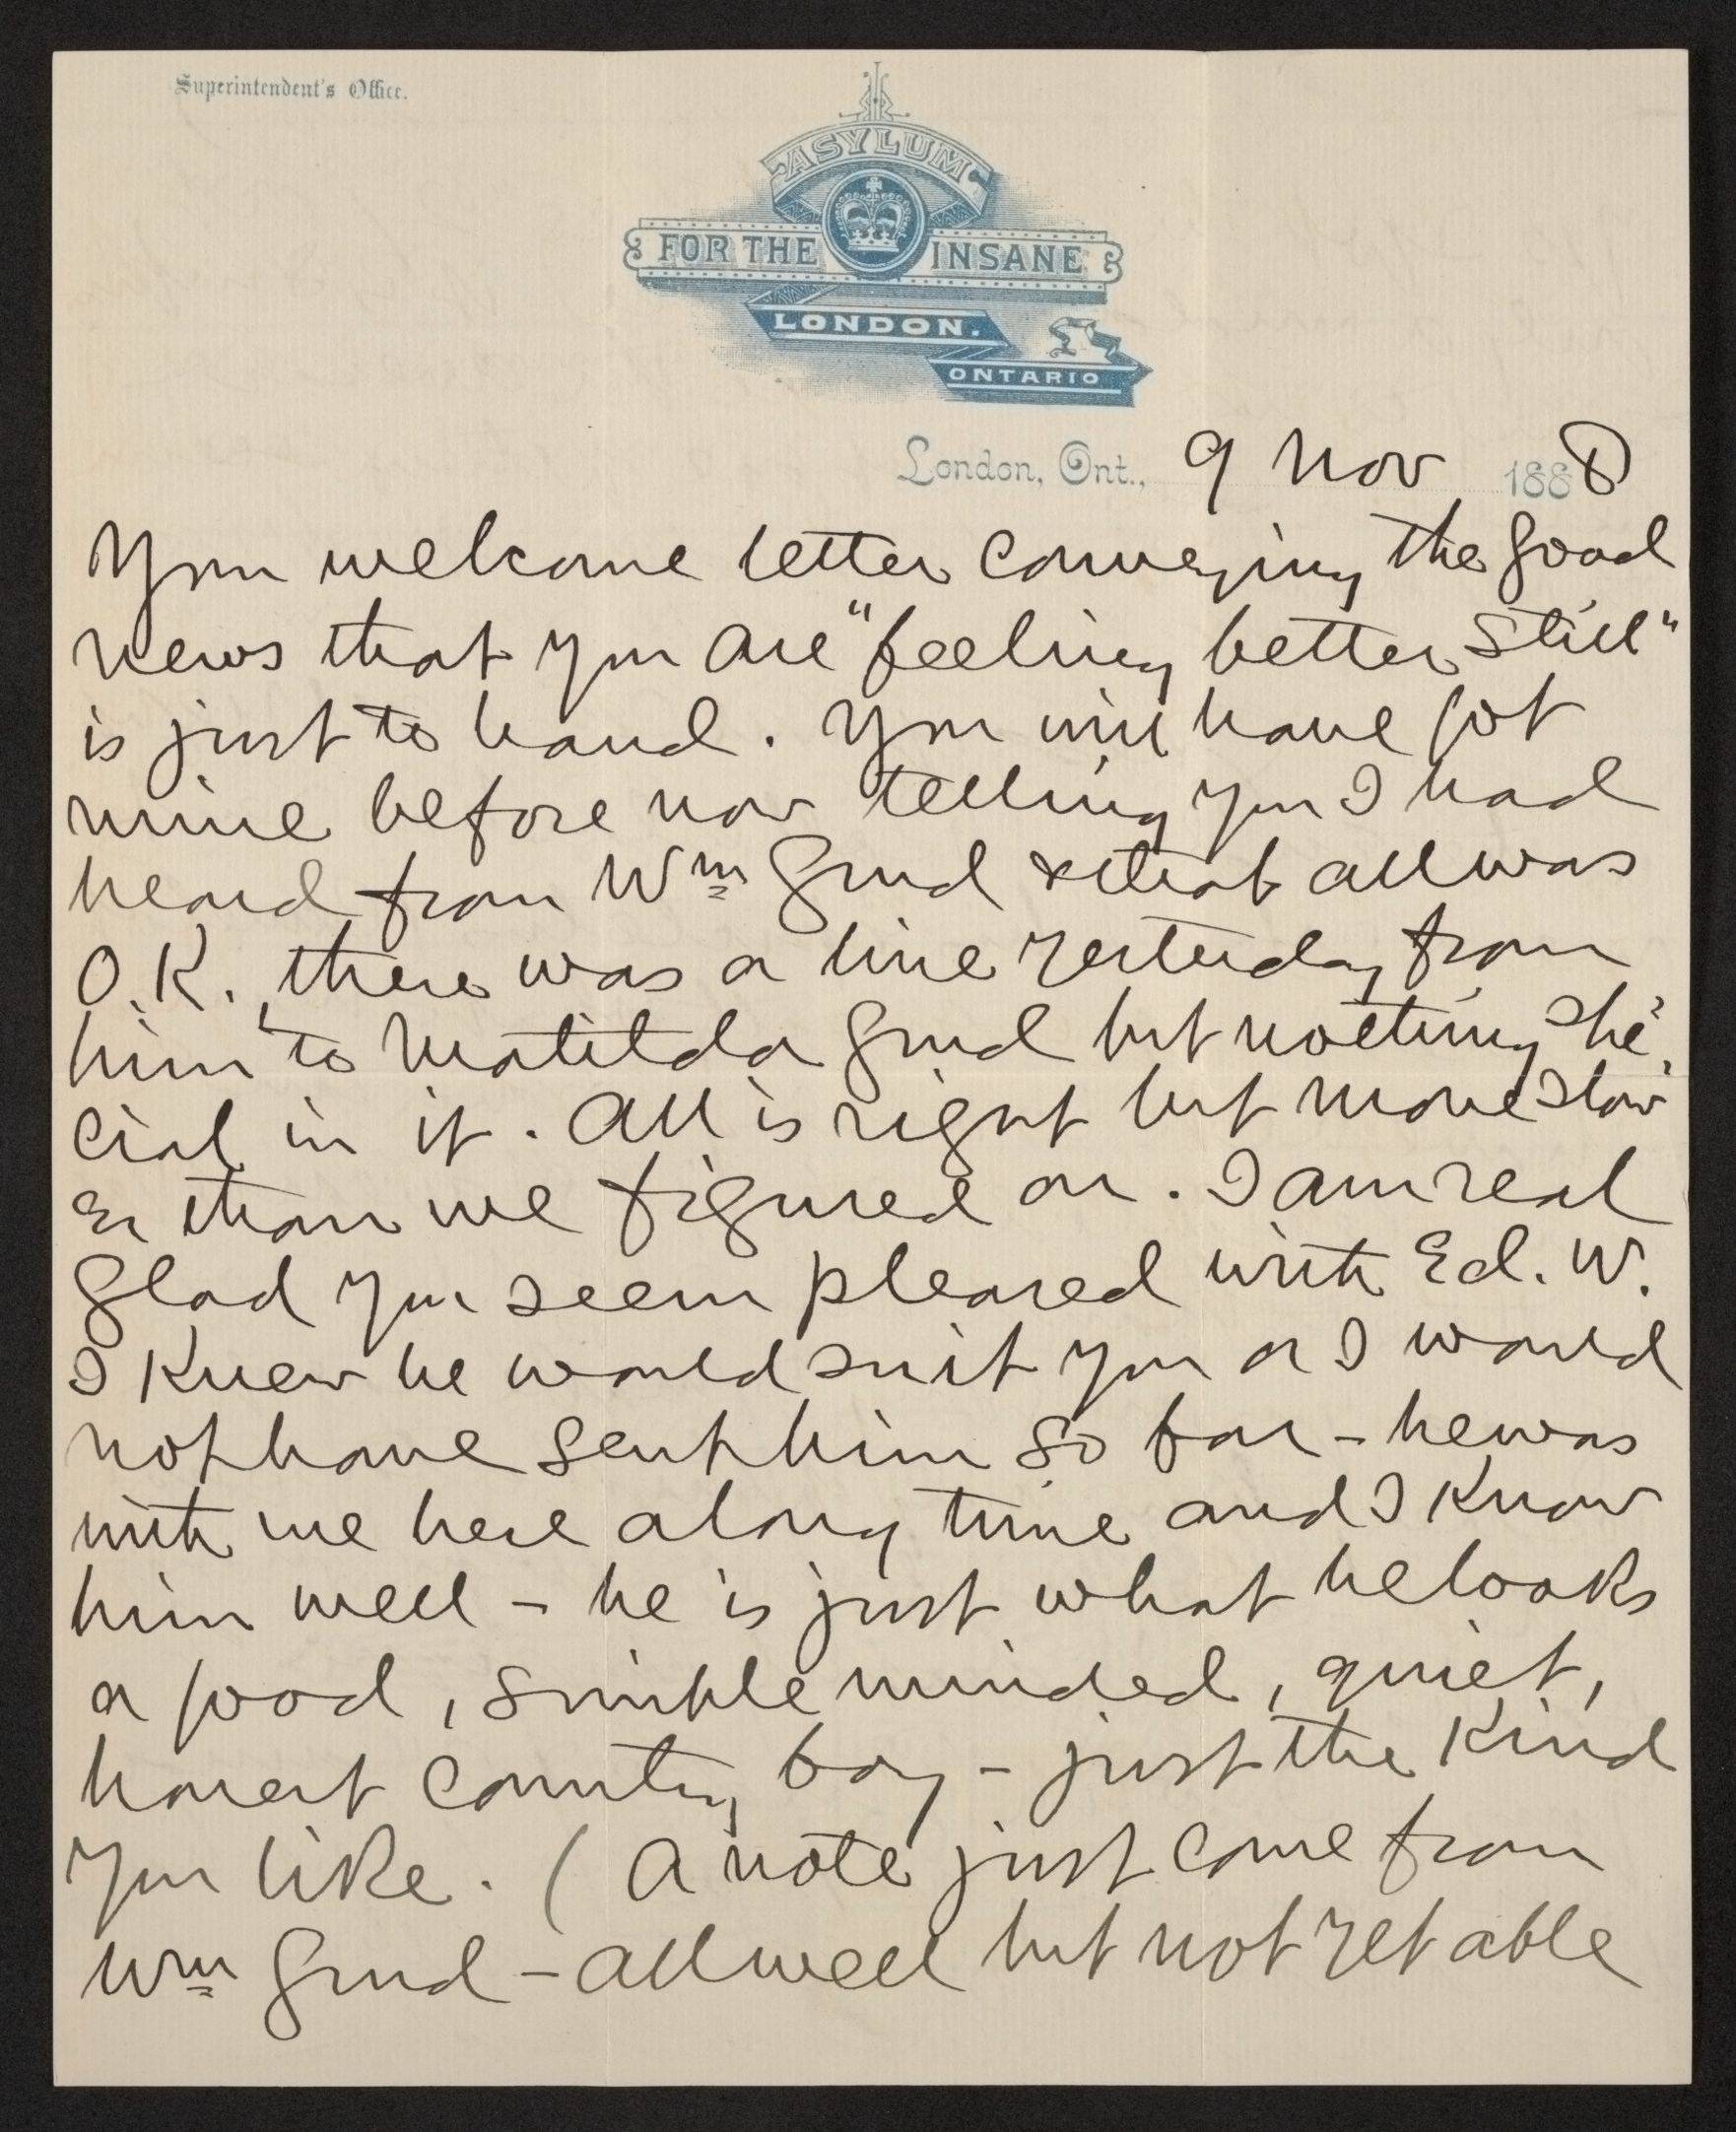 Superintendent's Office.
ASYLUM
FOR THE INSANE
LONDON.
ONTARIO
London, Ont., 9 Nov 1888
Your welcome letter conveying the good
news that you are "feeling better still"
is just to hand. You will have got
mine before now telling you I had
heard from Wm Gurd & that all was
O.K., there was a line yesterday from
him to Matilda Gurd but nothing spe-
cial in it. All is right but move slow
er than we figured on. I am real
glad you seem pleased with Ed. W.
I knew he would suit you or I would
not have sent him so far – he was
with me here a long time and I know
him well – he is just what he looks
a good, simple minded, quiet,
honest country boy – just the kind
you like. (A note just come from
Wm Gurd – all well but not yet able